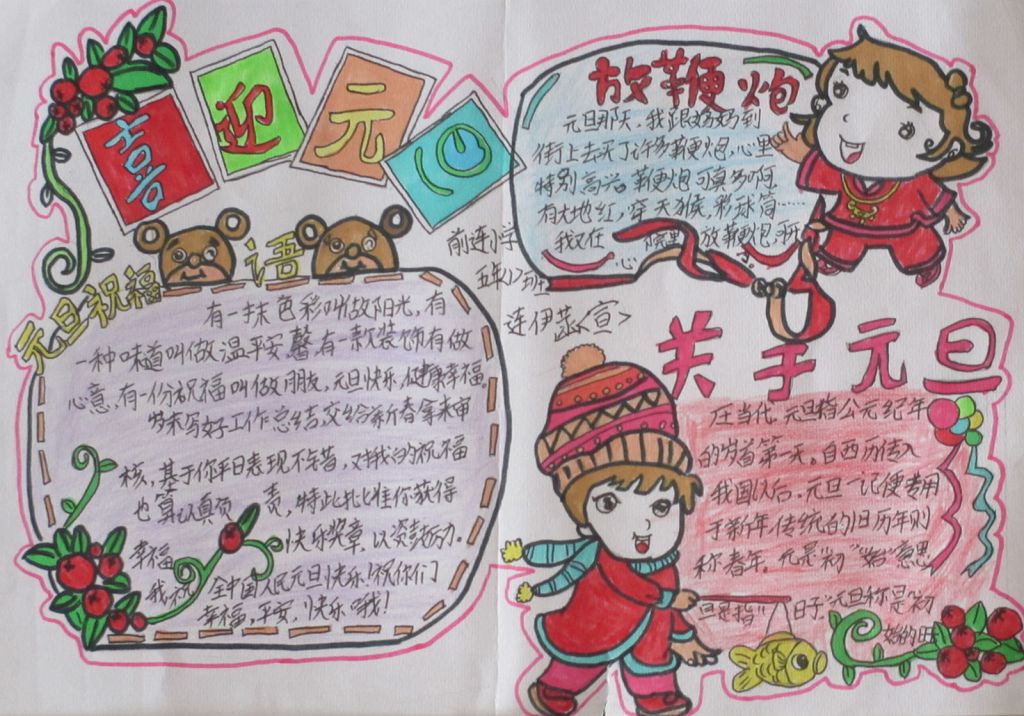 喜迎元旦
元旦祝福语
有一抹色彩叫做阳光,有
一种味道叫做温平安馨,有一款装饰有做
心意,有一份祝福叫做朋友,元旦快乐,健康幸福
岁末写好工作总结,交给新春拿来审
核,基于你平日表现不错,对我的祝福
也算认真负责,特此批准你获得
幸福 快乐奖章,以资鼓励。
我祝 全中国人民元旦快乐!祝你们
幸福,平安,快乐哦!
前连小学
五年
班
连伊
放鞭炮
元旦那天,我跟妈妈到
街上去买了许多鞭炮,心里
特别高兴。鞭炮可真多啊
有大地红,穿天猴,彩球筒……
我又在
放鞭炮,开
心
关于元旦
在当代,元旦指公元纪年
的岁首第一天。自西历传入
我国以后,元旦一记便专用
于新年,传统的旧历年则
称春年。元是初"始"意思
旦是指"日子"元旦称是初
始的日